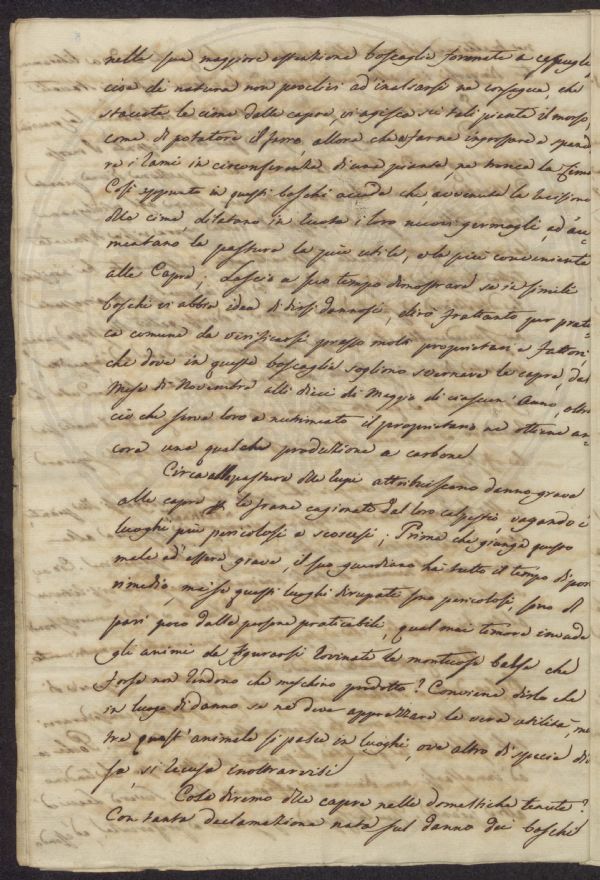 nella sua maggiore estenzione boscaglie formate a cespugli
cioa di natura non proclivi ad inalzarsi ne consegue, che
staccata la cima dalle capre, vi agisca su tali piante il morso,
come di potatore il ferro, allora che a farne ingrossare e spande
re i rami in circonferenza di una pianta, ne tronca la Cima
Così appunto in questi boschi accade che, avvenuta la recisione
della cima, dilatano in ruota i loro nuovi germogli, ed au=
mentano la pastura la più utile, e la più conveniente
alle Capre; Lascio a suo tempo dimostrare se in simili
boschi vi abbia idea di dirsi dannosi, dirò frattanto per prati=
ca comune da verificarsi presso molti proprietari e fattori
che dove in queste boscaglie sogliono svernare le capre, dal
Mese di Novembre alli dieci di Maggio di ciascun' Anno, oltre
ciò che serve loro a nutrimento il proprietario ne ottiene an=
cora una qualche produzione a carbone
Circa alla pastura delle rupi attribuiscono danno grave
alle capre le frane caginate dal loro calpestio, vagando i
luoghi più pericolosi e scoscesi; Prima che giunga questo
male ad' essere grave, il suo guardiano ha tutto il tempo di porvi
rimedio, ma se questi luoghi dirupati sono pericolosi, sono di
pari poco dalle persone praticabili, qual mai temere invade
gli animi da figurarsi rovinate le monticose balse che
forse non rendono che meschino prodotto? Conviene dirlo che
in luogo di danno se ne deve apprezzare la vera utilità, men
tre quest' animale si pasce in luoghi, ove altro di specie di
sa, si ricusa inoltrarvisi
Cosa diremo delle capre nelle domestiche tenute?
Con tanta declamazione nata sul danno dei boschi